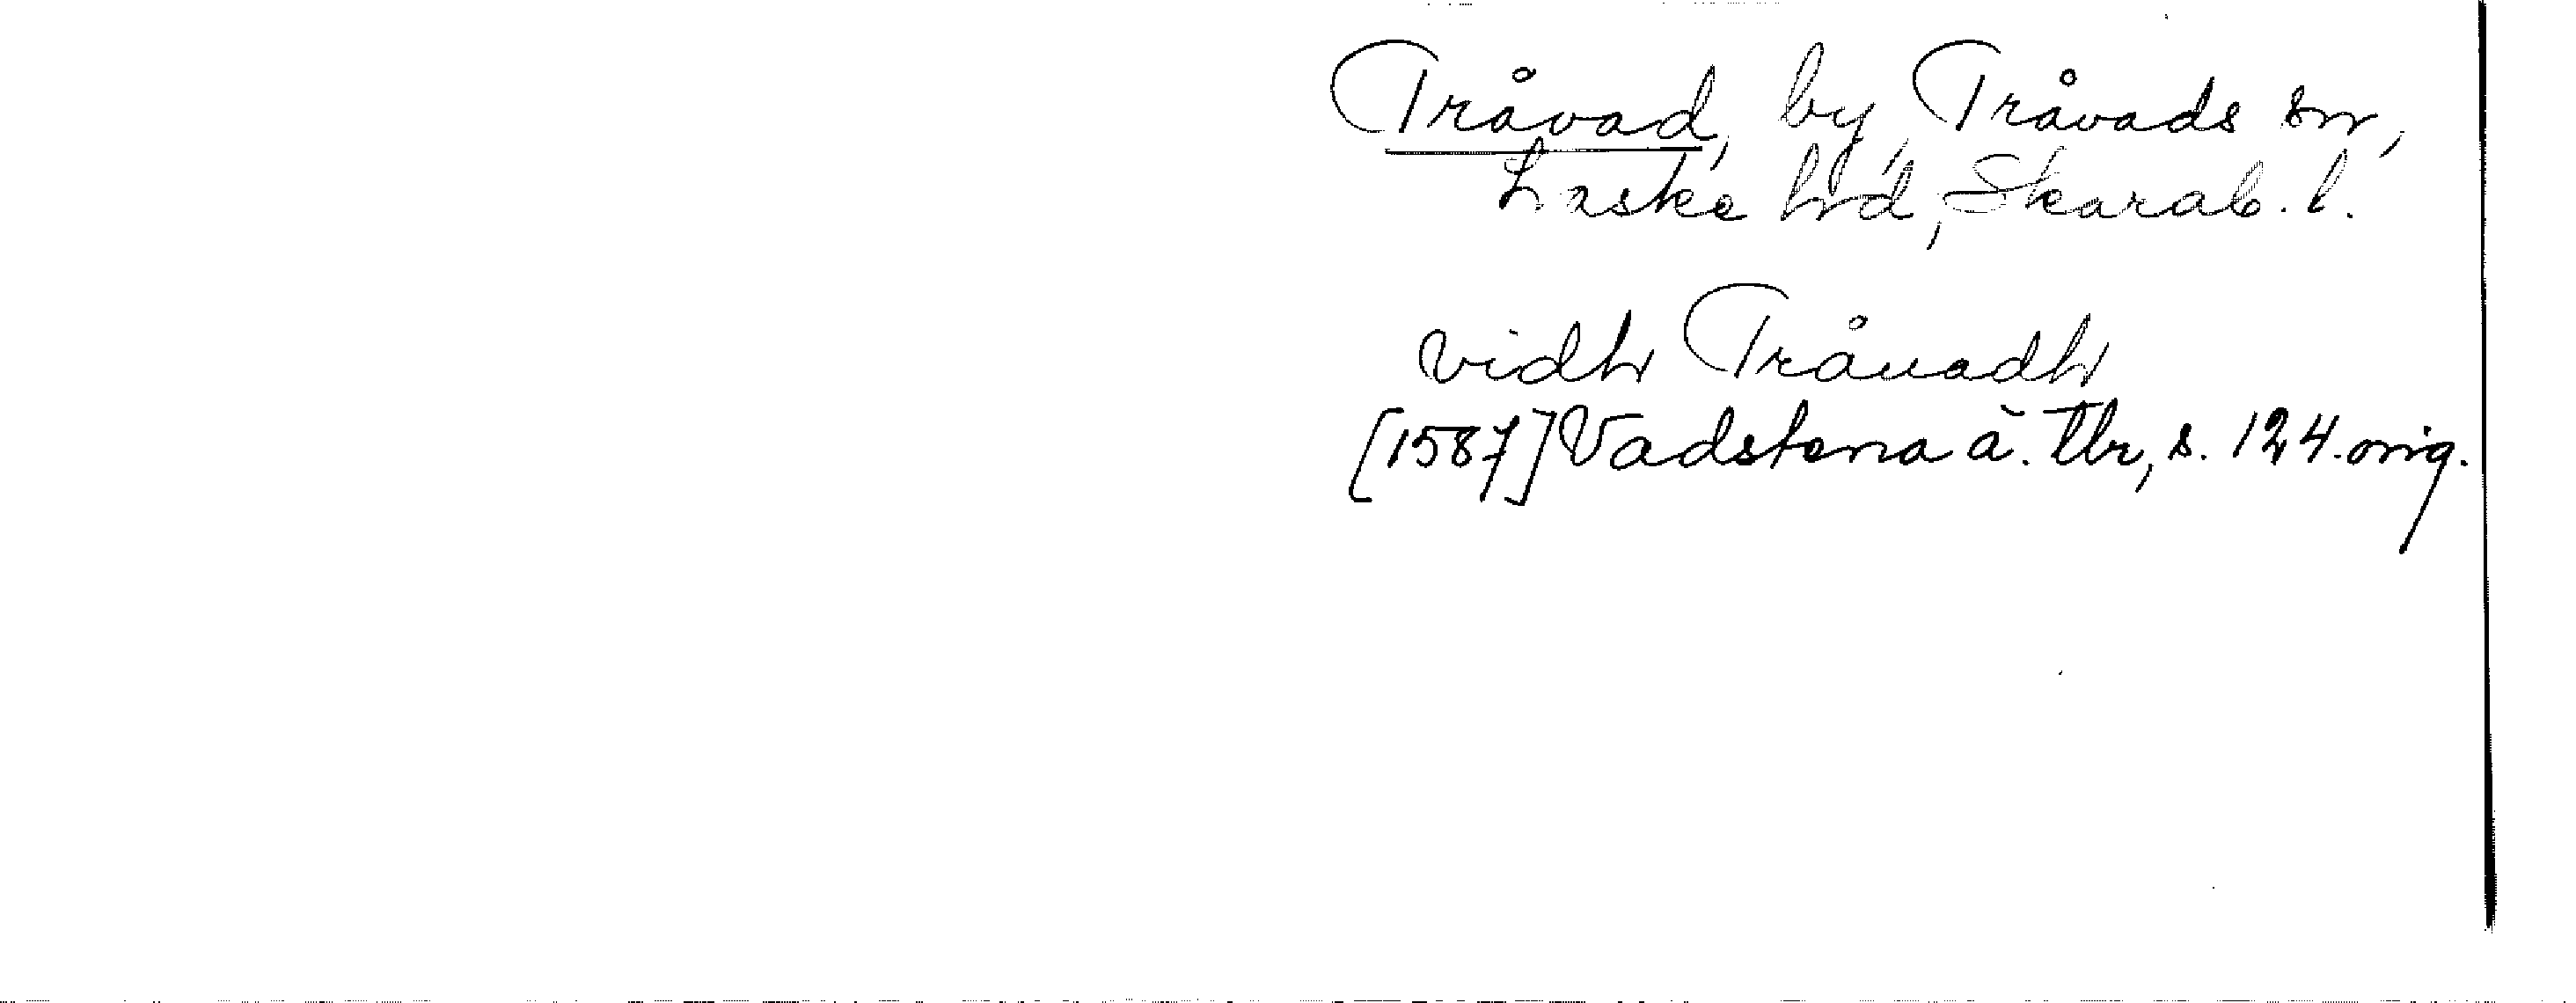 Tråvad, by, Tråvads sn,
Laske hd, Skarab. l.
vidh Tråuadh
[1587] Vadstena ä. tbr, s. 124. orig.